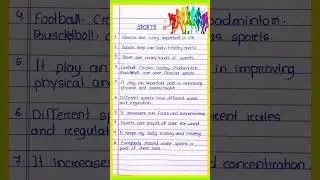 SPORTS
1. Sports are very important in life.
2. Sports keep our body healthy and fit.
3. There are many kinds of sports.
4. Football, Cricket, Hockey, Badminton,
Basketball, are some famous sports.
5. It play an important part in improving
physical and mental health.
6. Different sports have different rules
and regulation.
7. It increases our focus and concentration.
8. Sports are played all over the world.
9. It keeps my body strong and
10. Everybody should make sports a
part of their life.
4. Football, Cric
Basketball,
5. It play an
physical and
6. Different sp
and regulat
7. It increases
Badminton,
s sports.
in improving
rent rules
concentration.